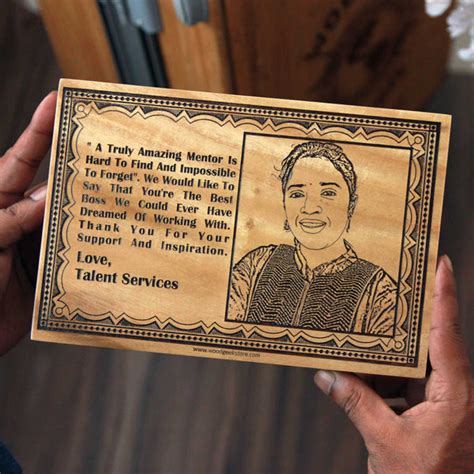 " A Truly Amazing Mentor Is
Hard To Find And Impossible
To Forget". We Would Like To
Say That You're The Best
Boss We Could Ever Have
Dreamed Of Working With.
Thank You For Your
Support And Inspiration.
Love,
Talent Services
www.woodgeekstore.com